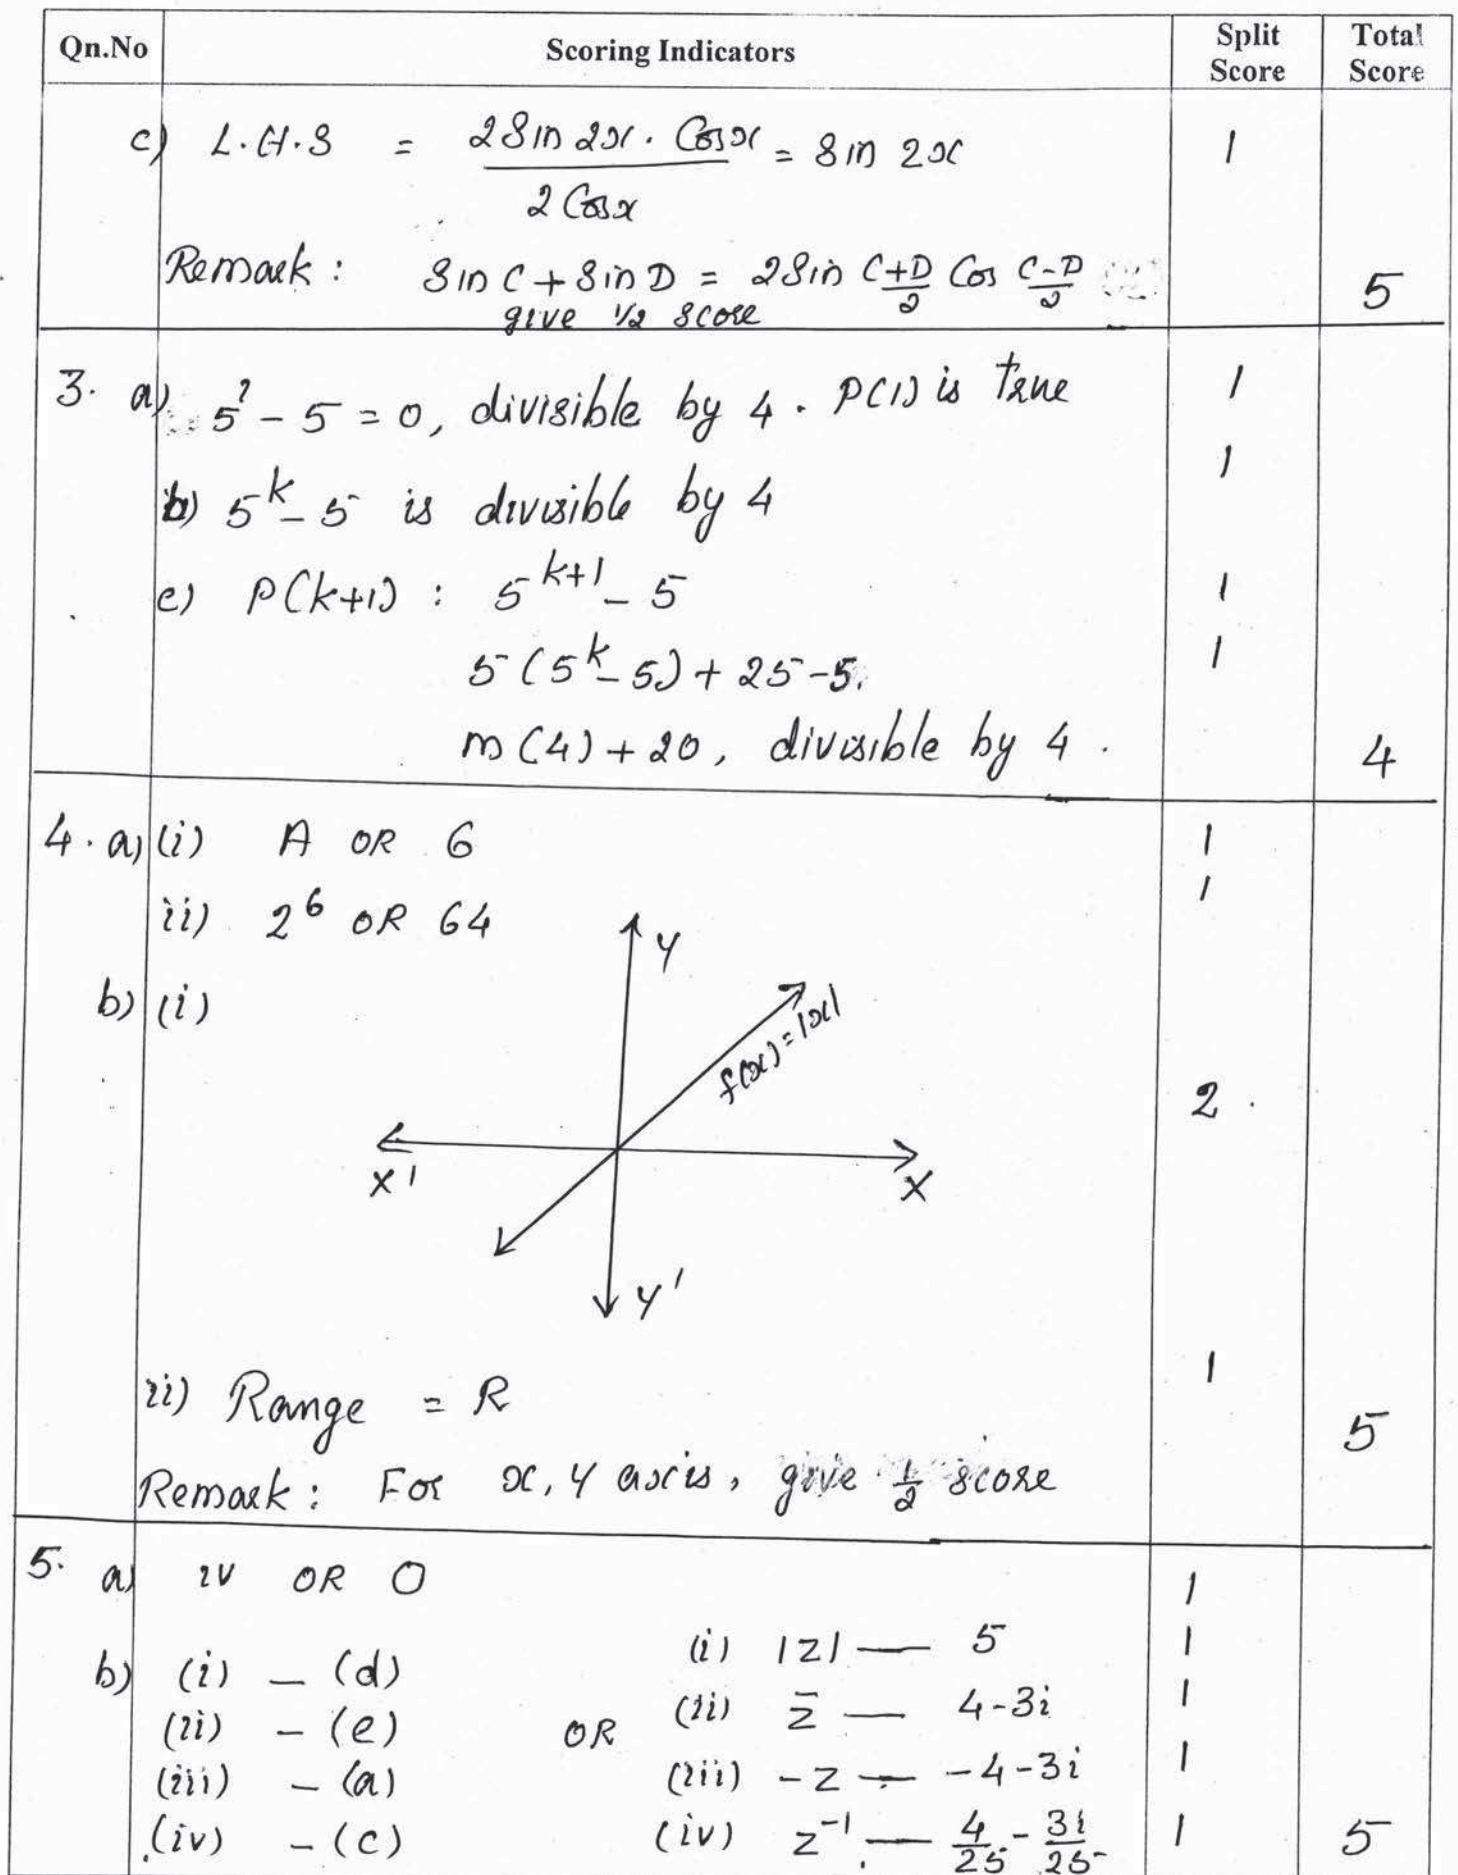 Qn.No Scoring Indicators Split Score Total Score
c) L.H.S = 2 Sin 2x . Cos x / 2 Cos x = Sin 2x 1
Remark : Sin C + Sin D = 2 Sin C+D/2 Cos C-D/2 5
give 1/2 score
3. a) 5¹ - 5 = 0, divisible by 4 . P(1) is true 1
b) 5^k - 5 is divisible by 4 1
c) P(k+1) : 5^k+1 - 5 1
5 (5^k - 5) + 25 - 5. 1
m (4) + 20, divisible by 4 . 4
4. a) (i) A OR 6 1
ii) 2⁶ OR 64 1
b) (i)
Y
f(x) = |x|
2
X' X
Y'
ii) Range = R 1
5
Remark : For x, y axis, give 1/2 score
5. a) iv OR 0 1
b) (i) - (d) (i) |z| — 5 1
(ii) - (e) OR (ii) z̄ — 4-3i 1
(iii) - (a) (iii) -z — -4-3i 1
(iv) - (c) (iv) z⁻¹ — 4/25 - 3i/25 1 5